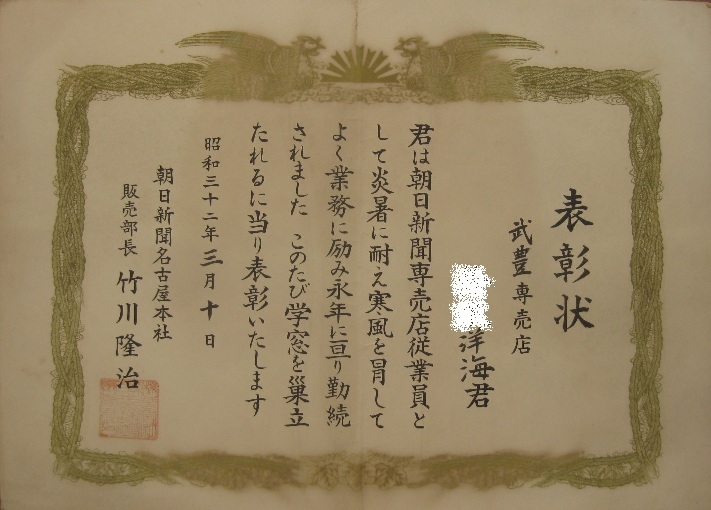 表彰状
武豊専売店
洋海君
君は朝日新聞専売店従業員と
して炎暑に耐え寒風を冒して
よく業務に励み永年に亘り勤続
されました このたび学窓を巣立
たれるに当り表彰いたします
昭和三十二年三月十日
朝日新聞名古屋本社
販売部長 竹川隆治